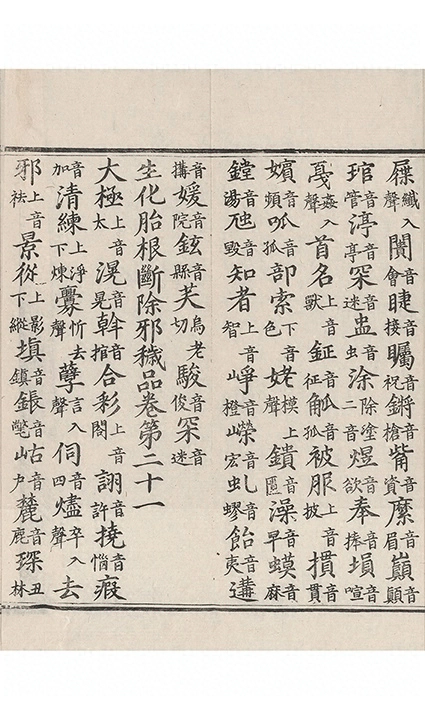 屧纖入聲闠音會睫音接矚音祝鏘音槍觜音資縻音眉巔音顛
琯音管渟音亭罙音迷蛊音虫涂除塗二音煜音欲奉音捧塤音喧
戞入聲首名上音獸鉦音征觚音狐被服上音披摜音貫
嬪音頻呱音狐部索下音色姥模上聲鐀音匱澡音早蟆音麻
鏜音湯虺音毀知者上音智崢音橙嶸音宏虬音蟉飴音夷遘
音搆媛音院鉉音縣芺烏老切駿音俊罙音迷
生化胎根斷除邪穢品卷第二十一
大極上音太滉音晃斡音捾合彩上音閤詡音許撓音惱瘕
音加清練上淨下煉釁忻去聲孽言入聲伺音四燼入聲去
邪上音祛景從上影下縱塡音鎮鋹音氅岵音戶麓音鹿琛丑林